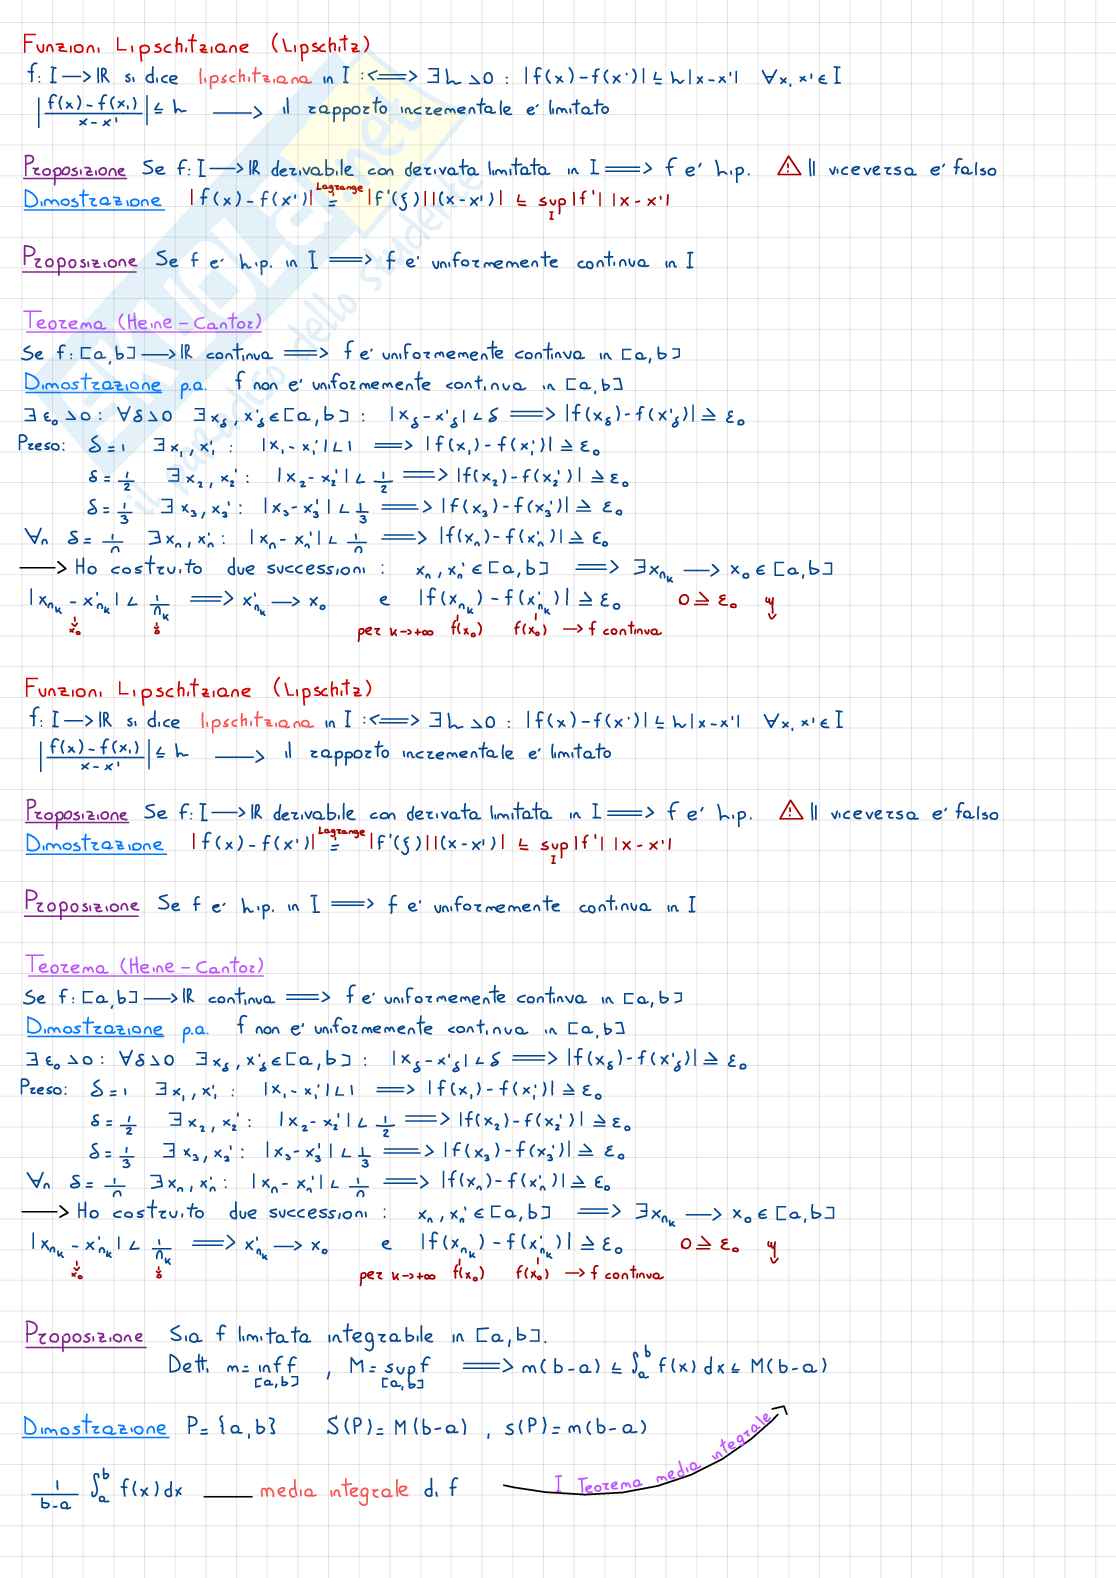 Funzioni Lipschitziane (Lipschitz)
f: I → ℝ si dice lipschitziana in I :⟺ ∃ h > 0 : |f(x) - f(x')| ≤ h|x - x'| ∀x, x' ∈ I
|f(x) - f(x,) / x - x'| ≤ h → il rapporto incrementale e' limitato
Proposizione Se f: I → ℝ derivabile con derivata limitata in I ⟹ f e' lip. ⚠ Il viceversa e' falso
Dimostrazione |f(x) - f(x')| =^Lagrange |f'(ξ)||(x - x')| ≤ sup_I |f'| |x - x'|
Proposizione Se f e' lip. in I ⟹ f e' uniformemente continua in I
Teorema (Heine - Cantor)
Se f: [a,b] → ℝ continua ⟹ f e' uniformemente continua in [a,b]
Dimostrazione p.a. f non e' uniformemente continua in [a,b]
∃ ε₀ > 0 : ∀δ > 0 ∃ x_δ, x'_δ ∈ [a,b] : |x_δ - x'_δ| < δ ⟹ |f(x_δ) - f(x'_δ)| ≥ ε₀
Preso: δ = 1 ∃ x₁, x'₁ : |x₁ - x₁'| < 1 ⟹ |f(x₁) - f(x₁')| ≥ ε₀
δ = 1/2 ∃ x₂, x₂' : |x₂ - x₂'| < 1/2 ⟹ |f(x₂) - f(x₂')| ≥ ε₀
δ = 1/3 ∃ x₃, x₃' : |x₃ - x₃'| < 1/3 ⟹ |f(x₃) - f(x₃')| ≥ ε₀
∀n δ = 1/n ∃ x_n, x'_n : |x_n - x_n'| < 1/n ⟹ |f(x_n) - f(x'_n)| ≥ ε₀
→ Ho costruito due successioni : x_n, x_n' ∈ [a,b] ⟹ ∃ x_{n_k} → x₀ ∈ [a,b]
|x_{n_k} - x'_{n_k}| < 1/n_k ⟹ x'_{n_k} → x₀ e |f(x_{n_k}) - f(x'_{n_k})| ≥ ε₀ 0 ≥ ε₀ ↯
↓ x₀ ↓ 0 per k → +∞ f(x₀) f(x₀) → f continua
Funzioni Lipschitziane (Lipschitz)
f: I → ℝ si dice lipschitziana in I :⟺ ∃ h > 0 : |f(x) - f(x')| ≤ h|x - x'| ∀x, x' ∈ I
|f(x) - f(x,) / x - x'| ≤ h → il rapporto incrementale e' limitato
Proposizione Se f: I → ℝ derivabile con derivata limitata in I ⟹ f e' lip. ⚠ Il viceversa e' falso
Dimostrazione |f(x) - f(x')| =^Lagrange |f'(ξ)||(x - x')| ≤ sup_I |f'| |x - x'|
Proposizione Se f e' lip. in I ⟹ f e' uniformemente continua in I
Teorema (Heine - Cantor)
Se f: [a,b] → ℝ continua ⟹ f e' uniformemente continua in [a,b]
Dimostrazione p.a. f non e' uniformemente continua in [a,b]
∃ ε₀ > 0 : ∀δ > 0 ∃ x_δ, x'_δ ∈ [a,b] : |x_δ - x'_δ| < δ ⟹ |f(x_δ) - f(x'_δ)| ≥ ε₀
Preso: δ = 1 ∃ x₁, x'₁ : |x₁ - x₁'| < 1 ⟹ |f(x₁) - f(x₁')| ≥ ε₀
δ = 1/2 ∃ x₂, x₂' : |x₂ - x₂'| < 1/2 ⟹ |f(x₂) - f(x₂')| ≥ ε₀
δ = 1/3 ∃ x₃, x₃' : |x₃ - x₃'| < 1/3 ⟹ |f(x₃) - f(x₃')| ≥ ε₀
∀n δ = 1/n ∃ x_n, x'_n : |x_n - x_n'| < 1/n ⟹ |f(x_n) - f(x'_n)| ≥ ε₀
→ Ho costruito due successioni : x_n, x_n' ∈ [a,b] ⟹ ∃ x_{n_k} → x₀ ∈ [a,b]
|x_{n_k} - x'_{n_k}| < 1/n_k ⟹ x'_{n_k} → x₀ e |f(x_{n_k}) - f(x'_{n_k})| ≥ ε₀ 0 ≥ ε₀ ↯
↓ x₀ ↓ 0 per k → +∞ f(x₀) f(x₀) → f continua
Proposizione Sia f limitata integrabile in [a,b].
Dett. m = inf_[a,b] f , M = sup_[a,b] f ⟹ m(b-a) ≤ ∫_a^b f(x) dx ≤ M(b-a)
Dimostrazione P = {a,b} S(P) = M(b-a) , s(P) = m(b-a)
1/(b-a) ∫_a^b f(x) dx — media integrale di f I Teorema media integrale
SKUOLA.net
il paradiso dello studente